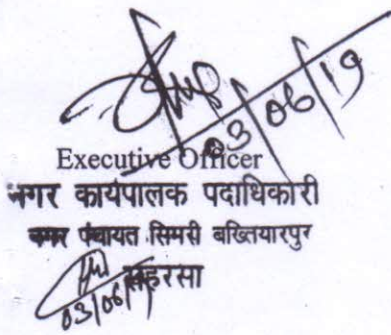 03/06/19
Executive Officer
नगर कार्यपालक पदाधिकारी
नगर पंचायत सिमरी बख्तियारपुर
सहरसा
03/06/19